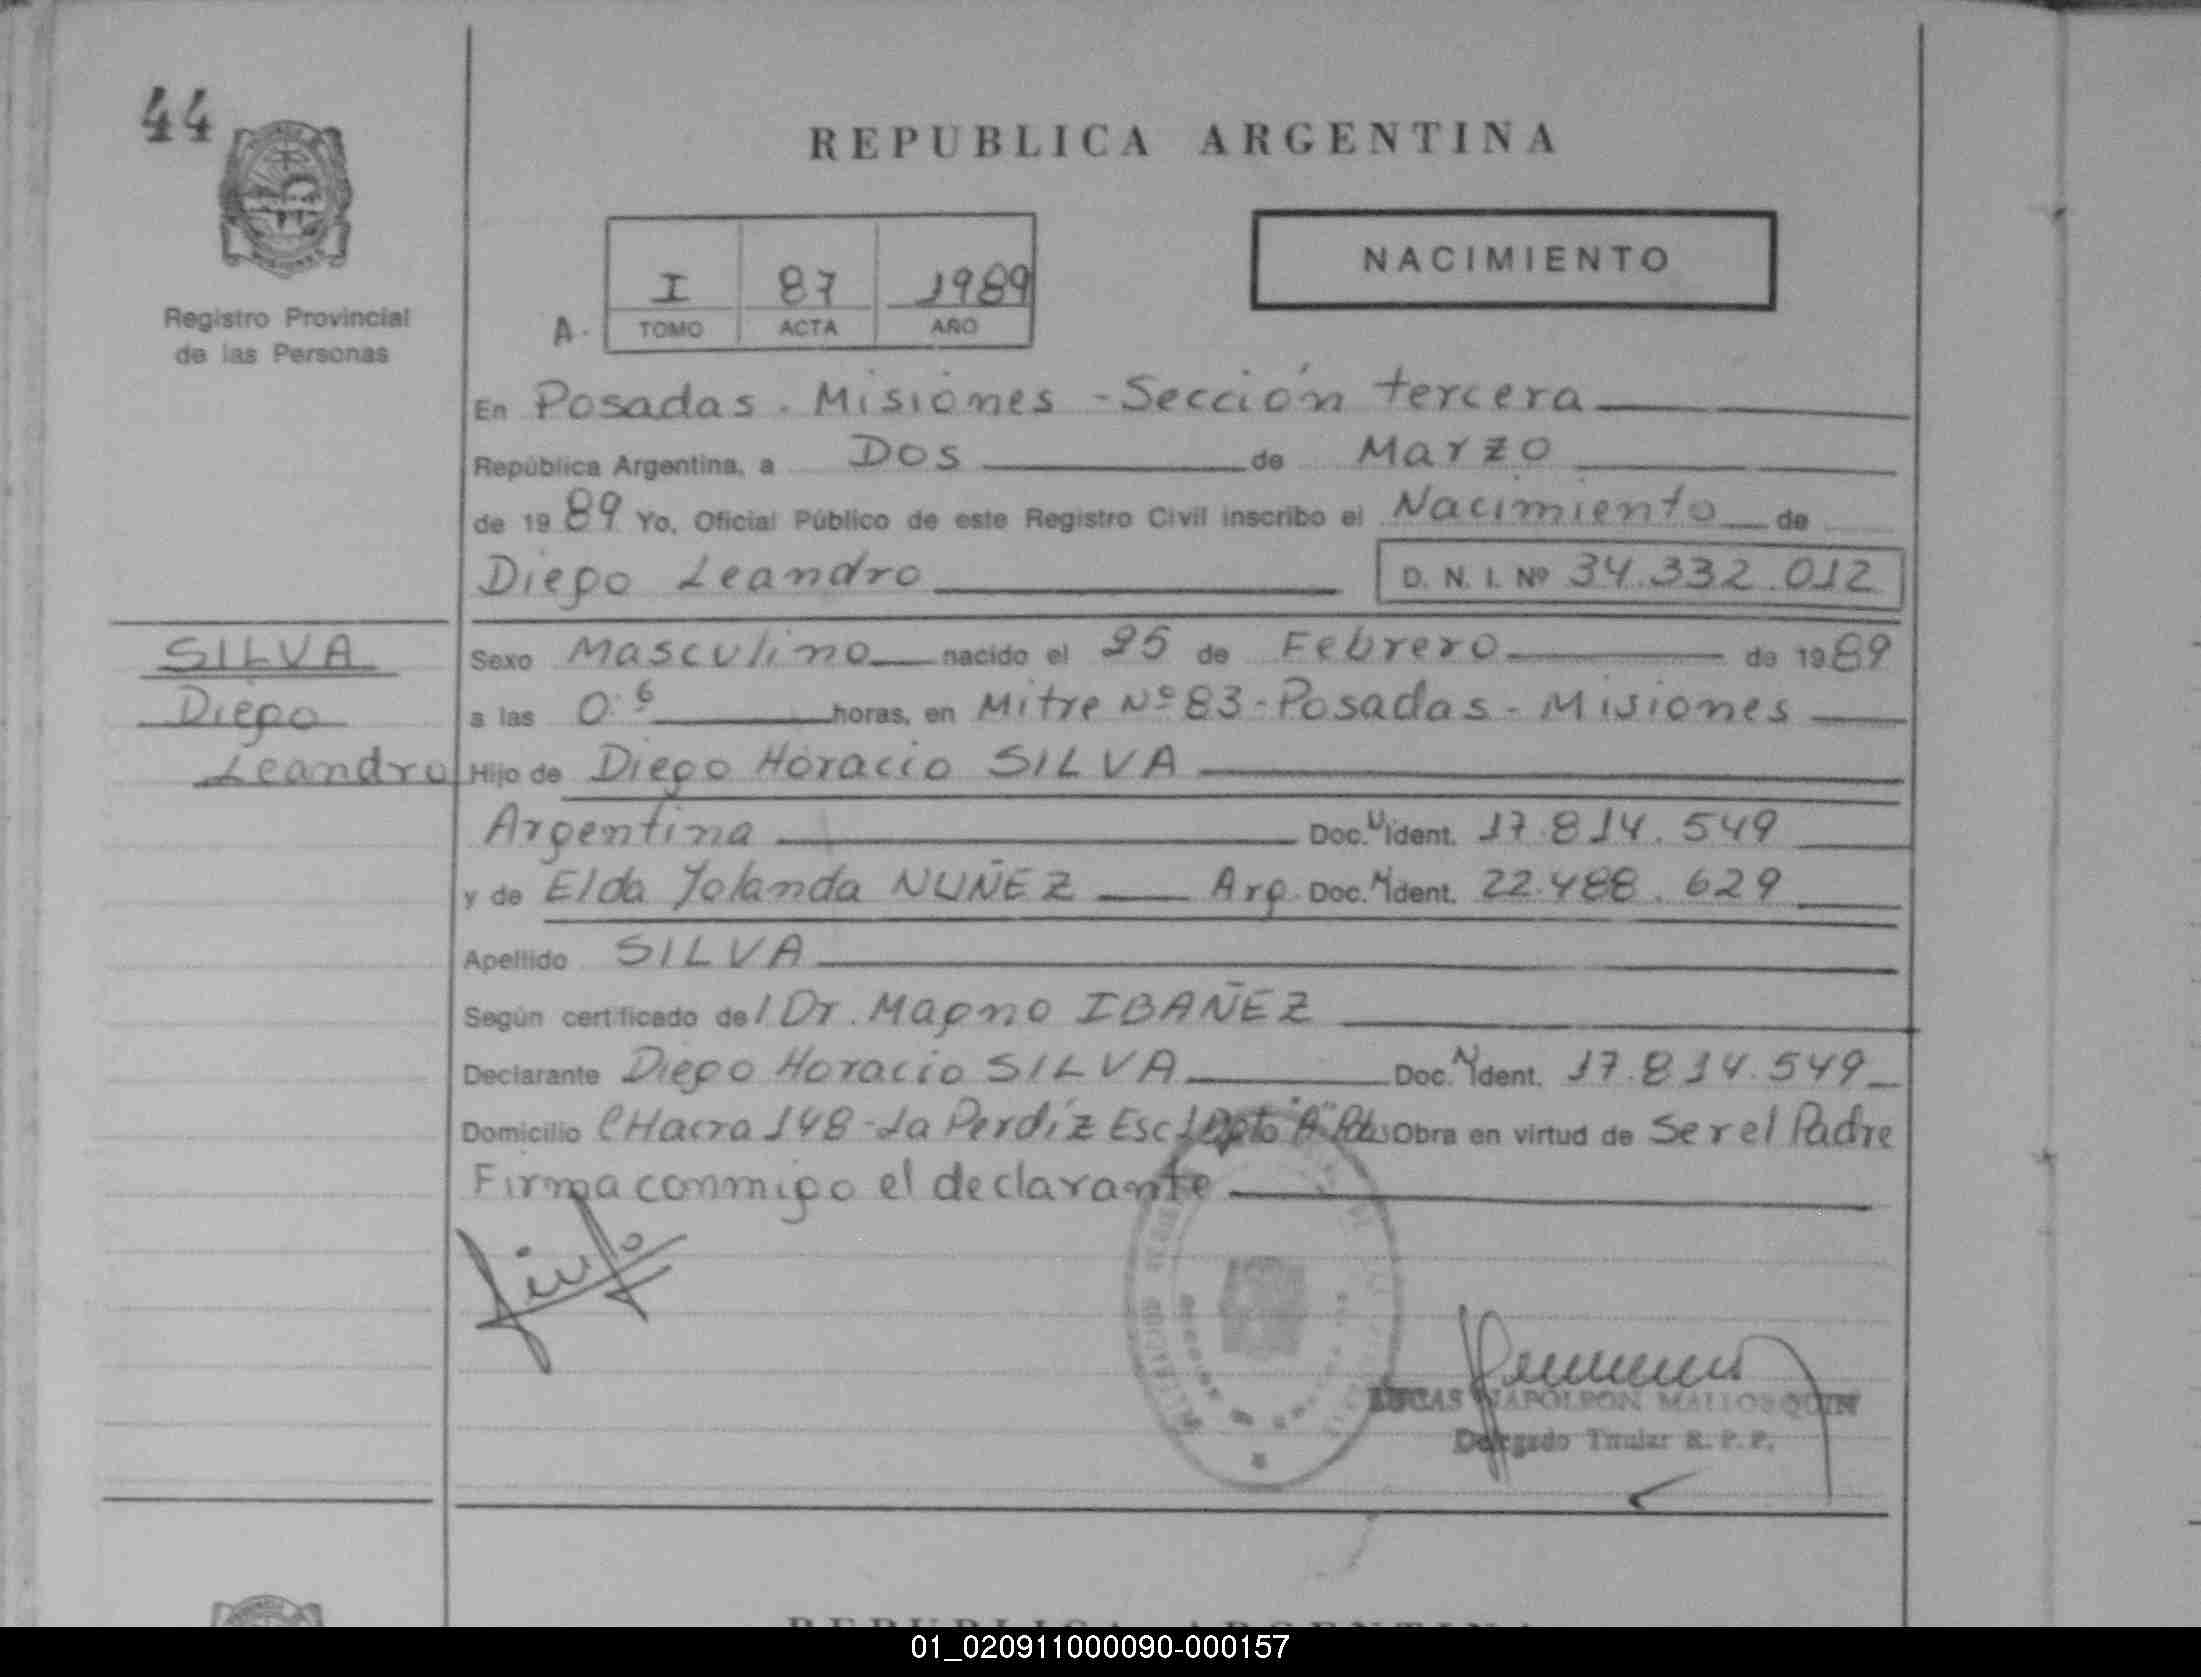 44
REPUBLICA ARGENTINA
NACIMIENTO
Registro Provincial
de las Personas
A.
I 87 1989
TOMO ACTA AÑO
En Posadas. Misiones - Sección tercera
República Argentina, a Dos de Marzo
de 1989 Yo, Oficial Público de este Registro Civil inscribo el Nacimiento de
Diego Leandro D. N. I. Nº 34.332.012
SILVA
Diego
Leandro
Sexo Masculino nacido el 25 de Febrero de 1989
a las 0.6 horas, en Mitre Nº 83 - Posadas - Misiones
Hijo de Diego Horacio SILVA
Argentina Doc. N Ident. 17.814.549
y de Elda Yolanda NUÑEZ Arg. Doc. N Ident. 22.488.629
Apellido SILVA
Según certificado del Dr. Magno IBAÑEZ
Declarante Diego Horacio SILVA Doc. N Ident. 17.814.549
Domicilio CHacra 148 - La Perdíz Esc 1 Dpto "A" Obra en virtud de Ser el Padre
Firma conmigo el declarante
LUCAS NAPOLEON MALLOSQUIN
Delegado Titular R. P. P.
REPUBLICA ARGENTINA
01_020911000090-000157